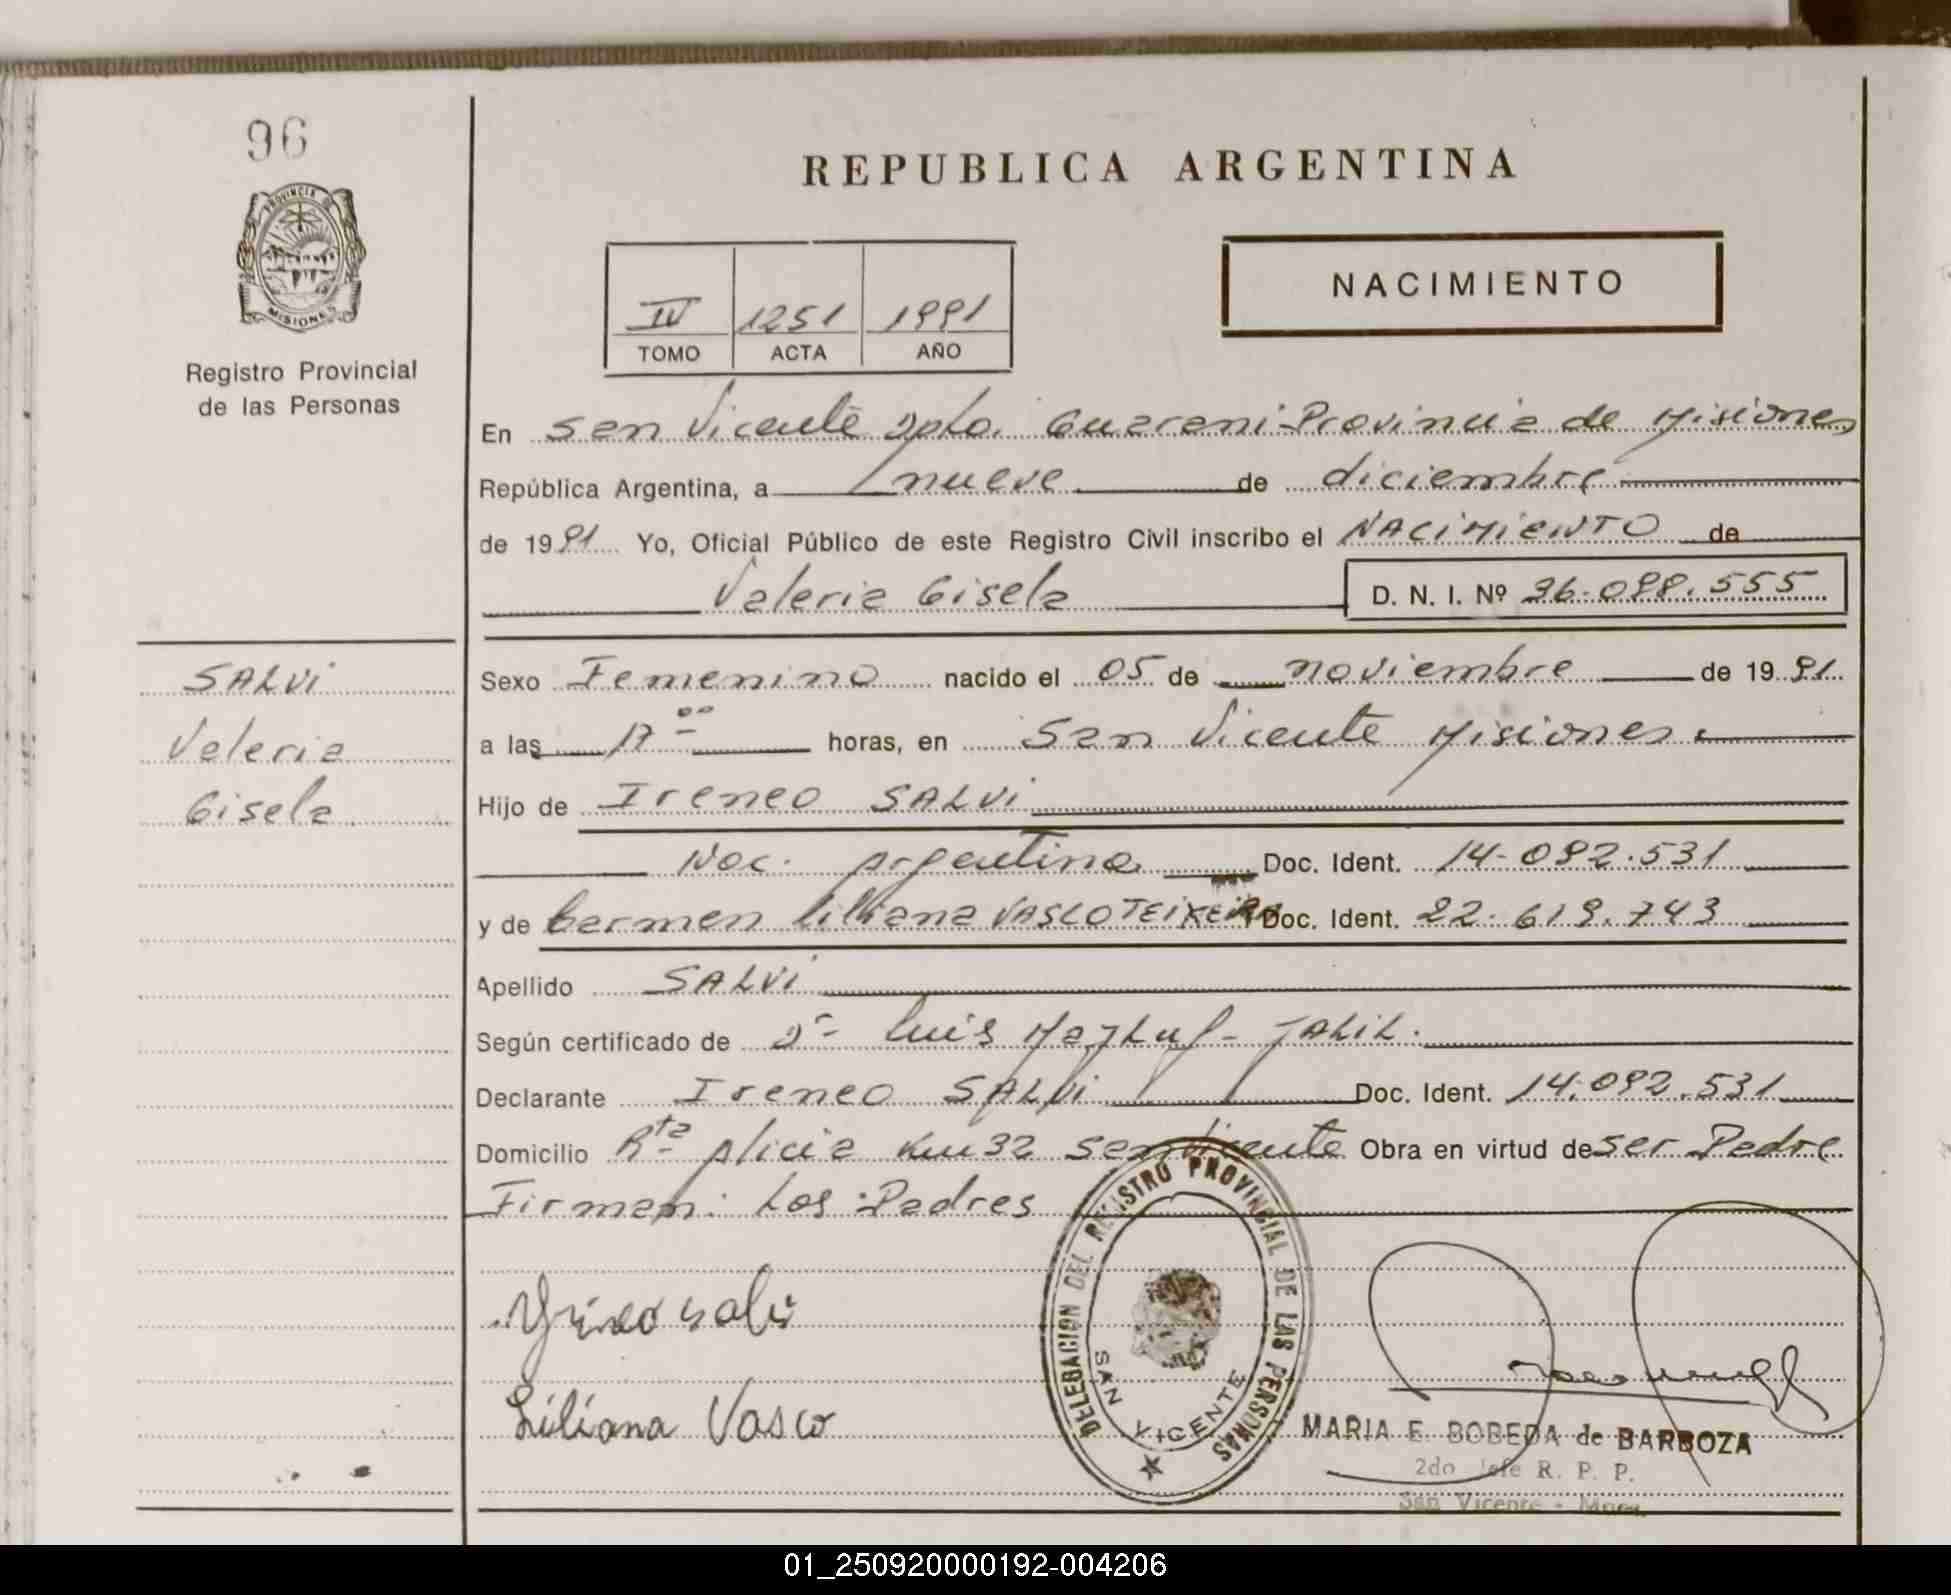 96
PROVINCIA DE
MISIONES
Registro Provincial
de las Personas
REPUBLICA ARGENTINA
NACIMIENTO
IV 1251 1991
TOMO ACTA AÑO
En San Vicente Dpto. Guarani-Provincia de Misiones
República Argentina, a nueve de diciembre
de 1991 Yo, Oficial Público de este Registro Civil inscribo el NACIMIENTO de
Valeria Gisela D. N. I. Nº 36.098.555
SALVI
Valeria
Gisela
Sexo Femenino nacido el 05 de noviembre de 1991
a las 17 00 horas, en San Vicente Misiones
Hijo de Ireneo SALVI
Nac. Argentina Doc. Ident. 14.092.531
y de Carmen Liliana VASCO TEIXEIRA Doc. Ident. 22.619.743
Apellido SALVI
Según certificado de Dr Luis Mazluf - JALIL.
Declarante Ireneo SALVI Doc. Ident. 14.092.531
Domicilio Rta Alicia Km 32 San Vicente Obra en virtud de ser Padre
Firman: Los Padres
Liliana Vasco
DELEGACION DEL REGISTRO PROVINCIAL DE LAS PERSONAS
SAN VICENTE
MARIA E. BOBEDA de BARBOZA
2do Jefe R. P. P.
San Vicente - Mnes.
01_250920000192-004206